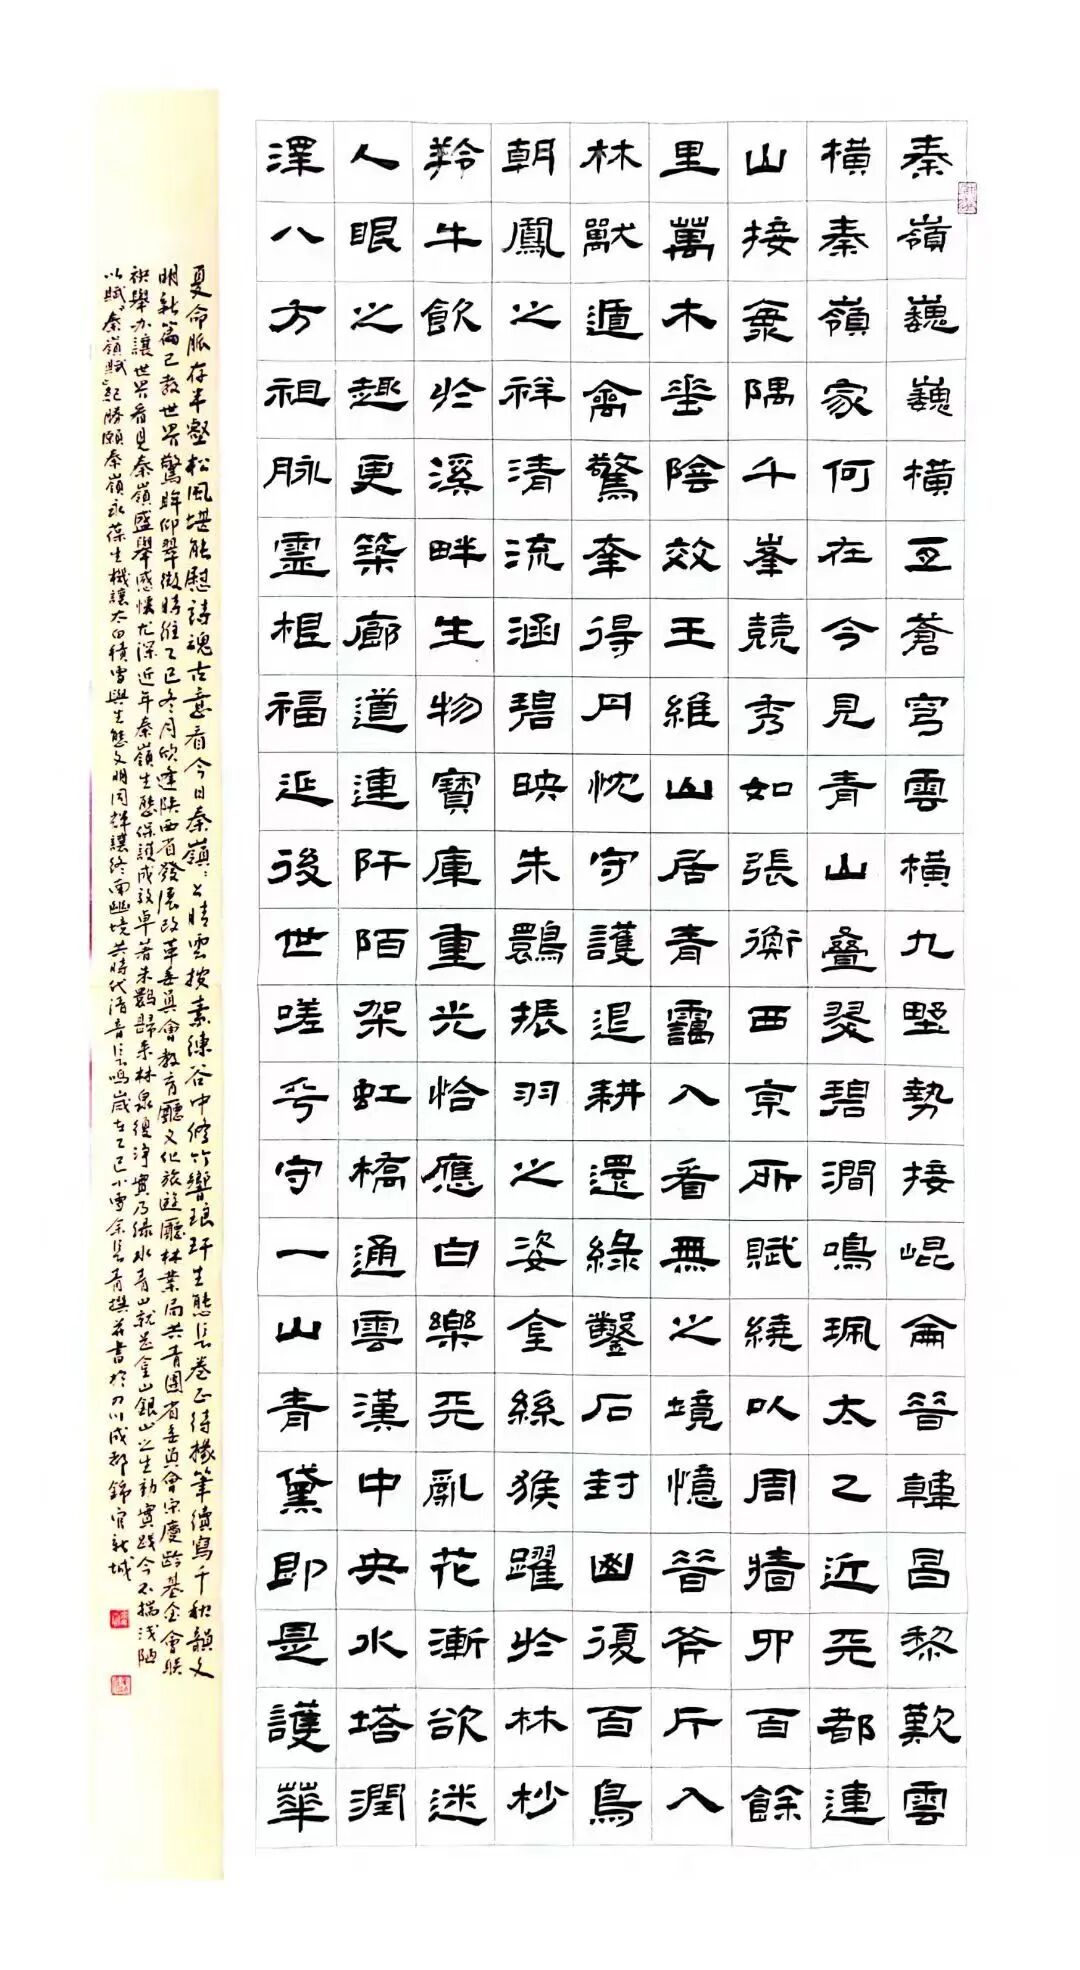 秦嶺巍巍橫亙蒼穹雲橫九野勢接崐崙昔韓昌黎歎雲
橫秦嶺家何在今見青山疊翠碧澗鳴珮太乙近天都連
山接海隅千峯競秀如張衡西京所賦繞以周牆卯百餘
里萬木垂陰效王維山居青靄入看無之境憶昔斧斤入
林獸遁禽驚幸得丹忱守護退耕還綠鑿石封幽復百鳥
朝鳳之祥清流涵碧映朱鸚振羽之姿金絲猴躍於林杪
羚牛飲於溪畔生物寶庫重光恰應白樂天亂花漸欲迷
人眼之趣更築廊道連阡陌架虹橋通雲漢中央水塔潤
澤八方祖脉靈根福延後世嗟乎守一山青黛即是護華
夏命脈存半壑松風堪能慰詩魂古意看今日秦嶺之晴雲接素練谷中修竹響琅玕生態長卷正待椽筆續寫千秋韻文
明新篇已教世界驚眸仰翠微時維乙巳冬月欣逢陝西省發展改革委員會教育廳文化旅遊廳林業局共青團省委員會宋慶齡基金會聯
袂舉办讓世界看見秦嶺盛舉感懷尤深近年秦嶺生態保護成效卓著朱鸚歸來林泉復淨實乃綠水青山就是金山銀山之生動實踐今不揣淺陋
以賦秦嶺賦紀勝願秦嶺永葆生機讓太白積雪與生態文明同輝讓終南幽境共時代清音長鳴歲在乙巳小雪余長青撰并書於四川成都錦官新城